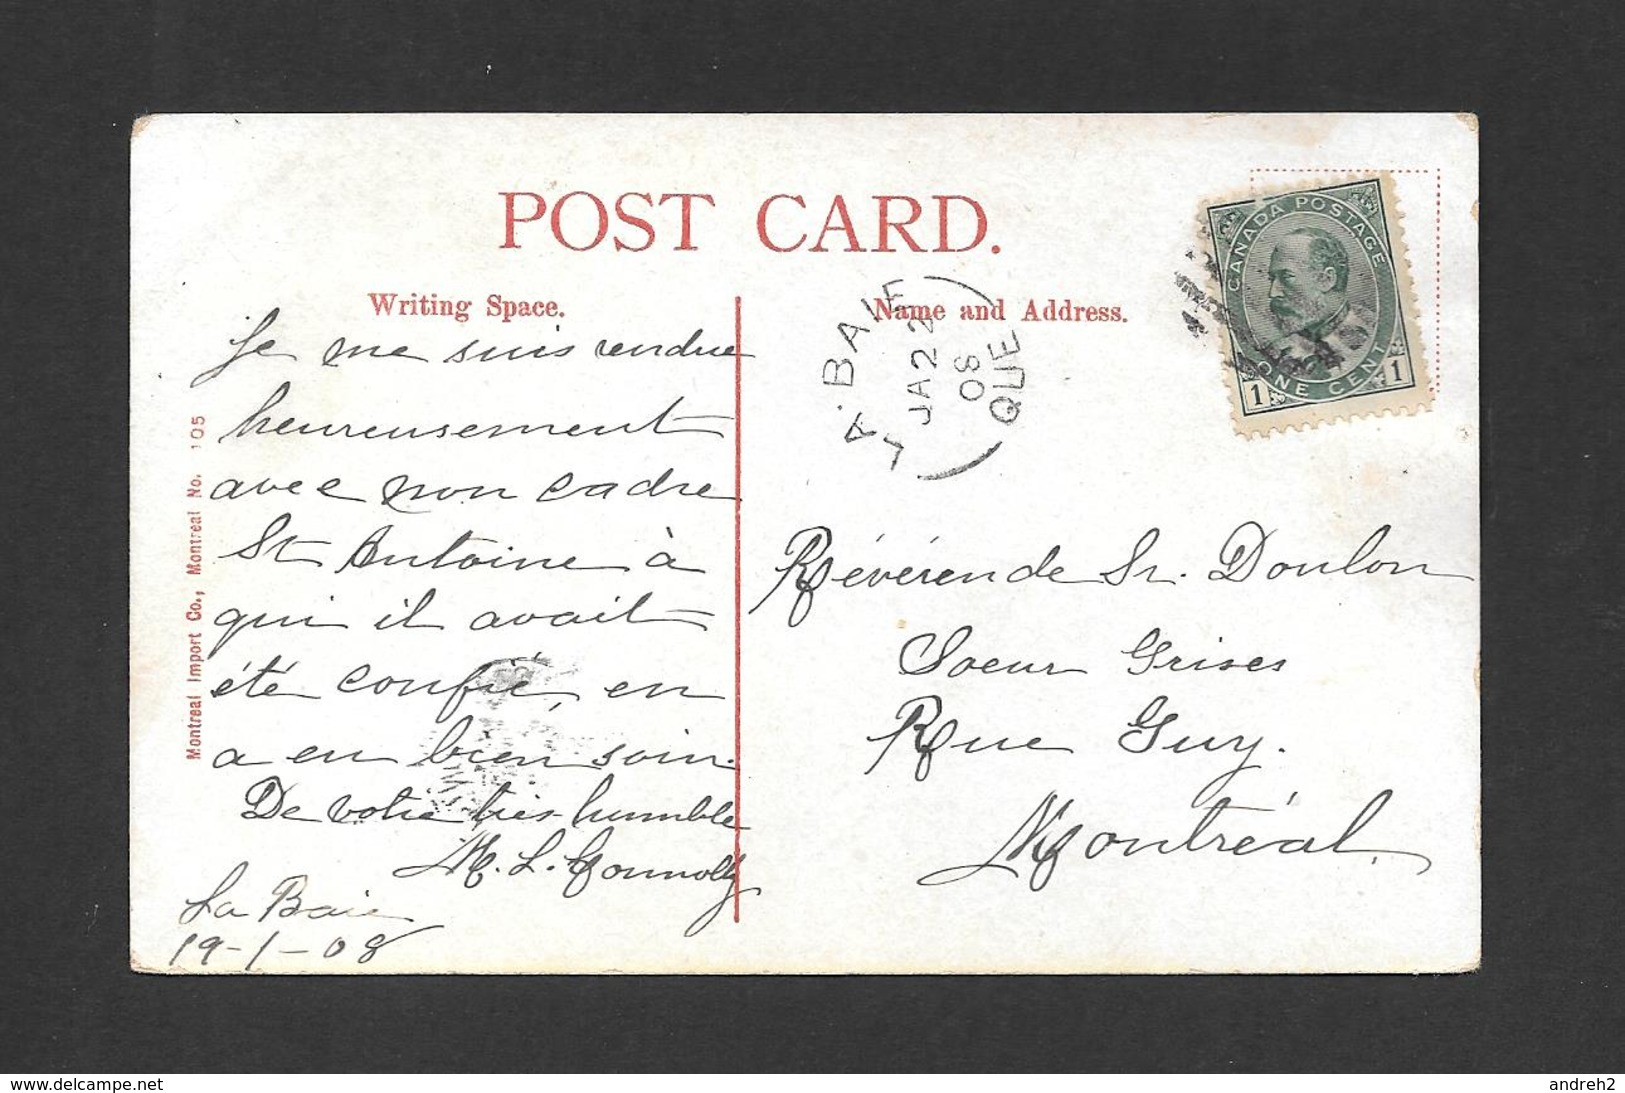 POST CARD.
Writing Space.
Name and Address.
CANADA POSTAGE
1 ONE CENT 1
LA·BAIE
JA 22
08
QUE
Montreal Import Co., Montreal No. 105
Je me suis rendue
heureusement
avec mon cadre
St Antoine à
qui il avait
été confié, en
a en bien soin.
De votre très humble
M. L. Connolly
La Baie
19-1-08
Révérende Sr. Doulon
Soeur Grises
Rue Guy.
Montréal.
www.delcampe.net
andreh2